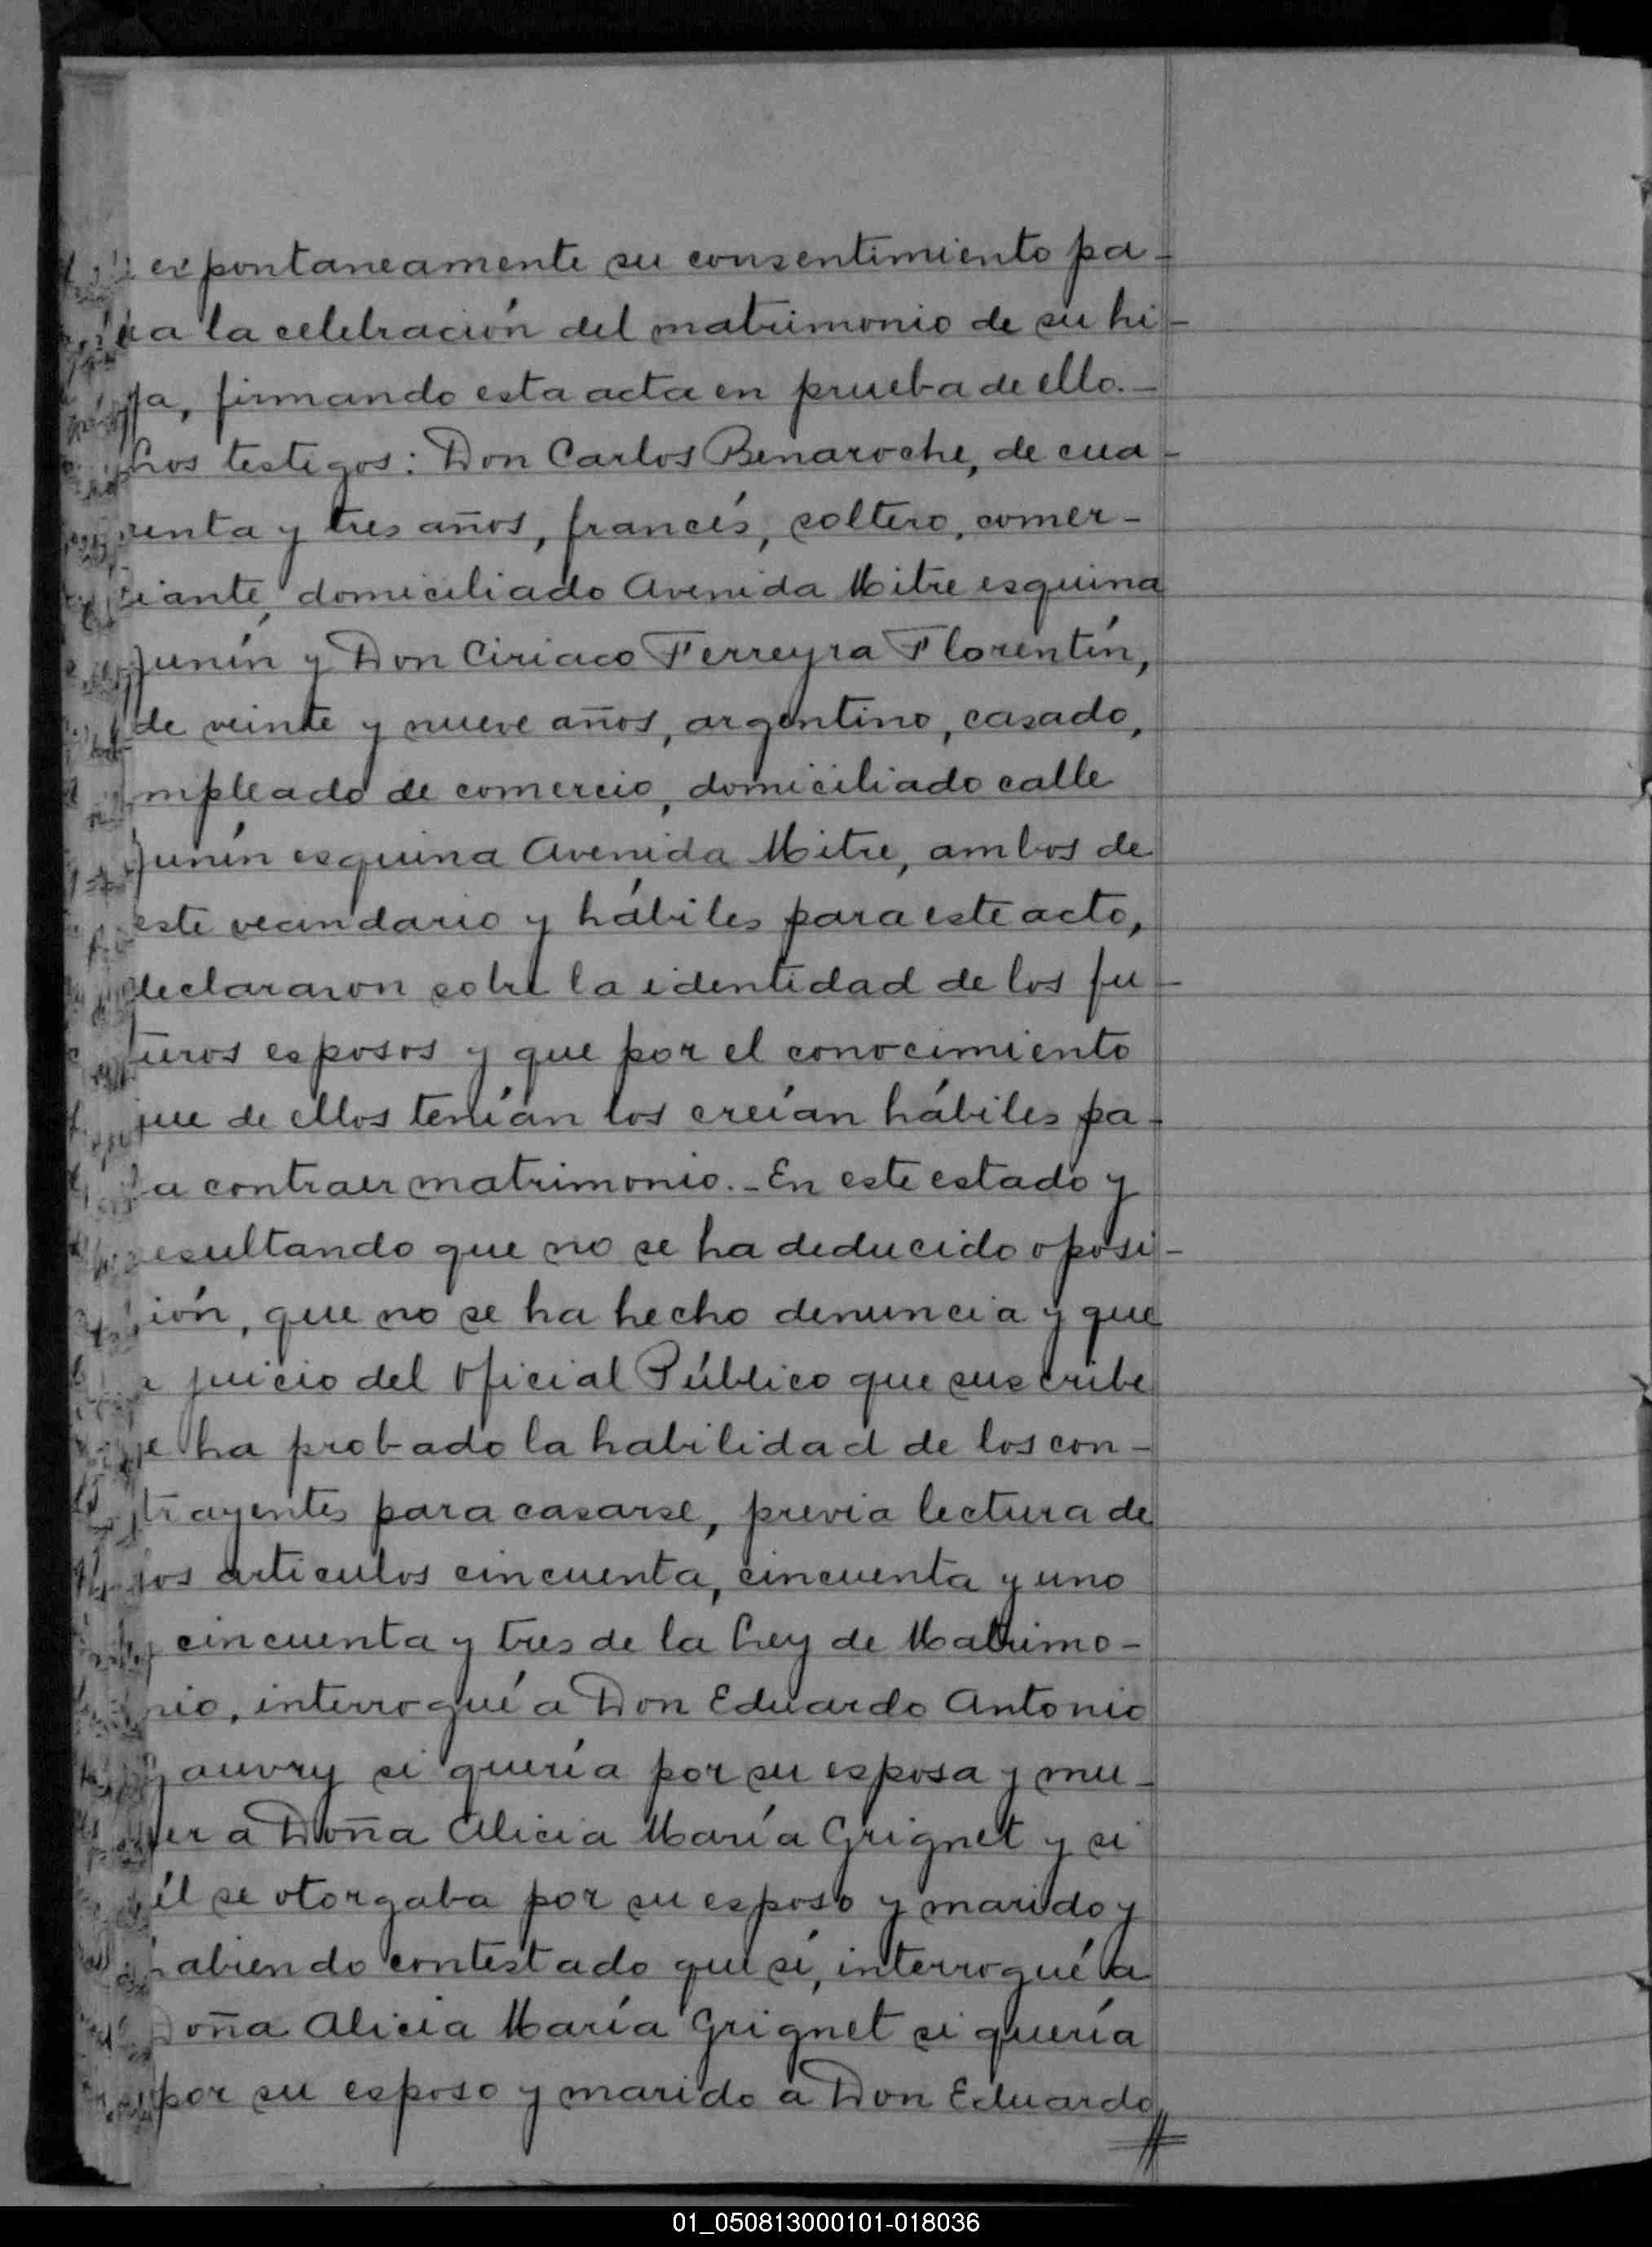 espontaneamente su consentimiento pa-
ra la celebración del matrimonio de su hi-
ja, firmando esta acta en prueba de ello.-
Los testigos: Don Carlos Benaroche, de cua-
renta y tres años, francés, soltero, comer-
ciante, domiciliado Avenida Mitre esquina
Junín y Don Ciriaco Ferreyra Florentín,
de veinte y nueve años, argentino, casado,
mpleado de comercio, domiciliado calle
Junín esquina Avenida Mitre, ambos de
este vecindario y hábiles para este acto,
declararon sobre la identidad de los fu-
turos esposos y que por el conocimiento
que de ellos tenían los creían hábiles pa-
ra contraer matrimonio.- En este estado y
resultando que no se ha deducido oposi-
ción, que no se ha hecho denuncia y que
a juicio del Oficial Público que suscribe
se ha probado la habilidad de los con-
trayentes para casarse, previa lectura de
los artículos cincuenta, cincuenta y uno
y cincuenta y tres de la Ley de Matrimo-
nio, interrogué a Don Eduardo Antonio
Gauvry si quería por su esposa y mu-
jer a Doña Alicia María Grignet y si
él se otorgaba por su esposo y marido y
habiendo contestado que sí, interrogué a
Doña Alicia María Grignet si quería
por su esposo y marido a Don Eduardo
01_050813000101-018036